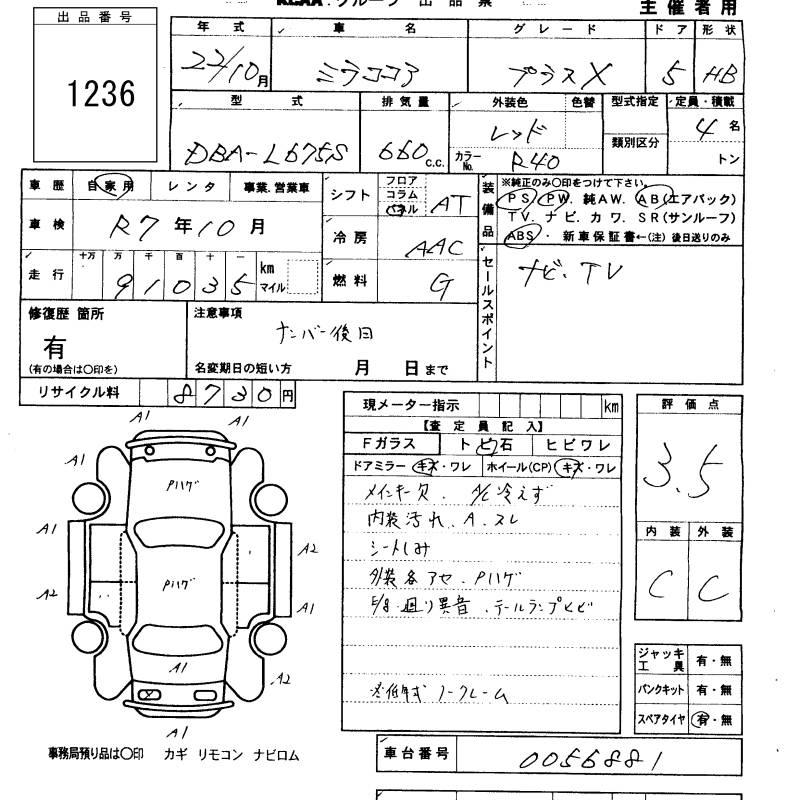 KCAA. グループ 出品票
主催者用
出品番号
1236
年式 車名 グレード ドア 形状
22/10月 ミラココア プラスX 5 HB
型式 排気量 外装色 色替 型式指定 定員・積載
DBA-L675S 660c.c. レッド 4名
カラーNo. R40 類別区分 トン
車歴 自家用 レンタ 事業.営業車
車検 R7年10月
走行 十万 万 千 百 十 一
91035 km マイル
シフト フロア コラム パネル AT
冷房 AAC
燃料 G
装備品 ※純正のみ○印をつけて下さい。
PS. PW. 純AW. AB(エアバック)
TV. ナビ. カワ. SR(サンルーフ)
ABS・ 新車保証書←(注) 後日送りのみ
セールスポイント
ナビ.TV
修復歴 箇所
有
(有の場合は○印を)
注意事項
ナンバー後日
名変期日の短い方 月 日まで
リサイクル料 8730円
現メーター指示 km
【査定員記入】
Fガラス トビ石 ヒビワレ
ドアミラー キズ・ワレ ホイール(CP) キズ・ワレ
メインキー欠 A/C冷えず
内装汚れ.A.スレ
シートしみ
外装各アセ.Pハゲ
廻り異音.テールランプヒビ
ノークレーム
評価点
3.5
内装 外装
C C
ジャッキ工具 有・無
パンクキット 有・無
スペアタイヤ 有・無
A1 A1
A1 Pハゲ A1
A1 A2
A2 Pハゲ A1
A1 A2
A1
事務局預り品は○印 カギ リモコン ナビロム
車台番号 0056881